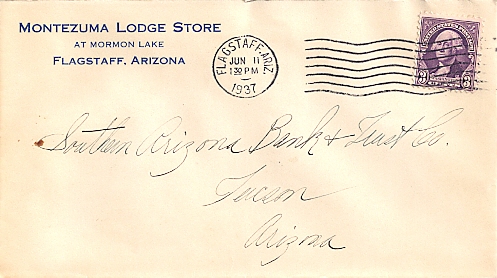 MONTEZUMA LODGE STORE
AT MORMON LAKE
FLAGSTAFF, ARIZONA
FLAGSTAFF. ARIZ.
JUN 11
1 30 PM
1937
3 3
Southern Arizona Bank & Trust Co.
Tucson
Arizona